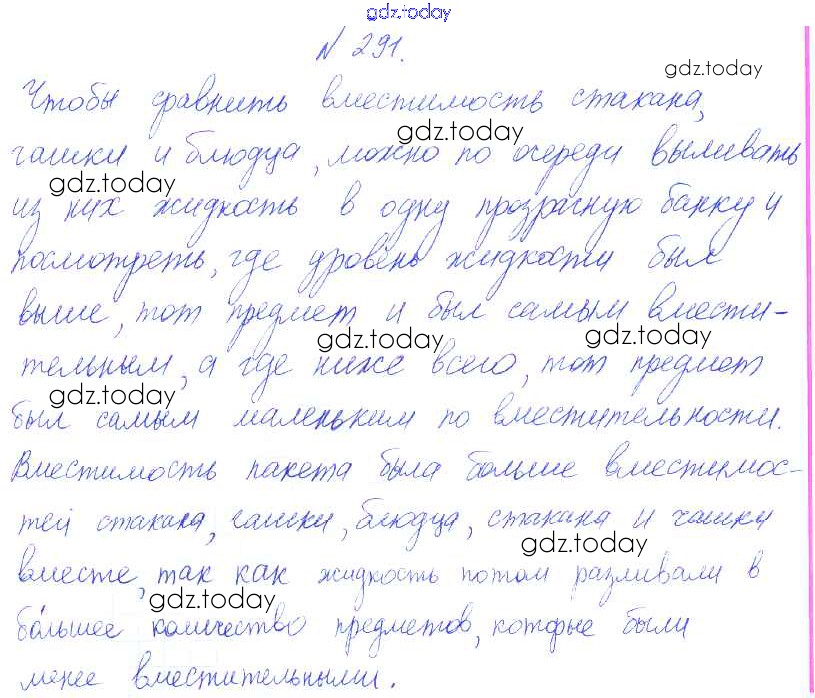 gdz.today
N 291.
gdz.today
Чтобы сравнить вместимость стакана,
gdz.today
чашки и блюдца, можно по очереди выливать
gdz.today
из них жидкость в одну прозрачную банку и
посмотреть, где уровень жидкости был
выше, тот предмет и был самым вмести-
gdz.today gdz.today
тельным, а где ниже всего, тот предмет
gdz.today
был самым маленьким по вместительности.
Вместимость пакета была больше вместимос-
тей стакана, чашки, блюдца, стакана и чашки
gdz.today
вместе, так как жидкость потом разливали в
gdz.today
бо́льшее количество предметов, которые были
менее вместительными.